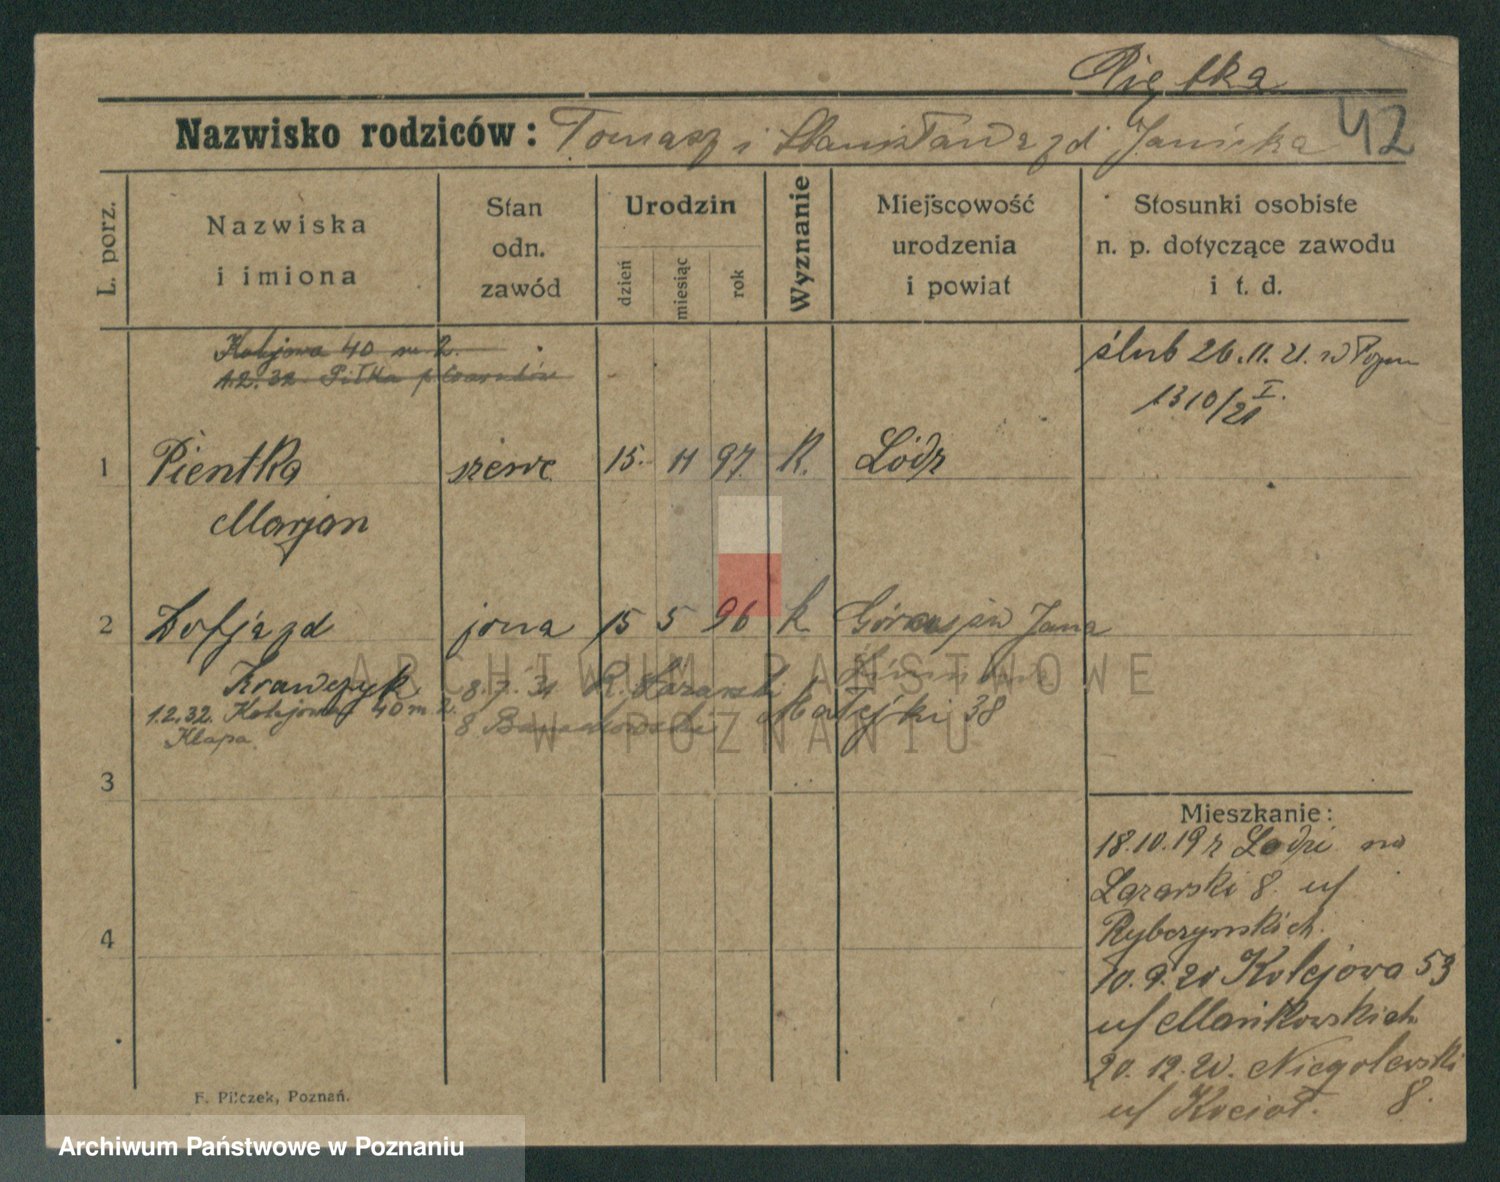 Piętka
Nazwisko rodziców: Tomasz i Stanisława zd Janicka 42
L. porz.
Nazwiska
i imiona
Stan
odn.
zawód
Urodzin
dzień
miesiąc
rok
Wyznanie
Miejscowość
urodzenia
i powiat
Stosunki osobiste
n. p. dotyczące zawodu
i t. d.
Kolejowa 40 m 2.
1.2.32. Piłka
ślub 26.11.21. w Pozn
1310/21 I.
1 Pientka szewc 15. 11 97. R. Łódz
Marjan
2 Zofja zd żona 15 5 96 k Jana
Krawczyk 8.7.31 Łazarski
1.2.32. Kolejowa 40 m 2. 8 Matejki 38
Klapa
3
Mieszkanie:
18.10.19 z Lodzi na
Łazarski 8. u/
Rybczynskich.
4
10.9.20 Kolejowa 53
u/ Mańkowskich
20.12.20. Niegolewski
u/ Kocioł. 8.
F. Pilczek, Poznań.
ARCHIWUM PAŃSTWOWE
W POZNANIU
Archiwum Państwowe w Poznaniu